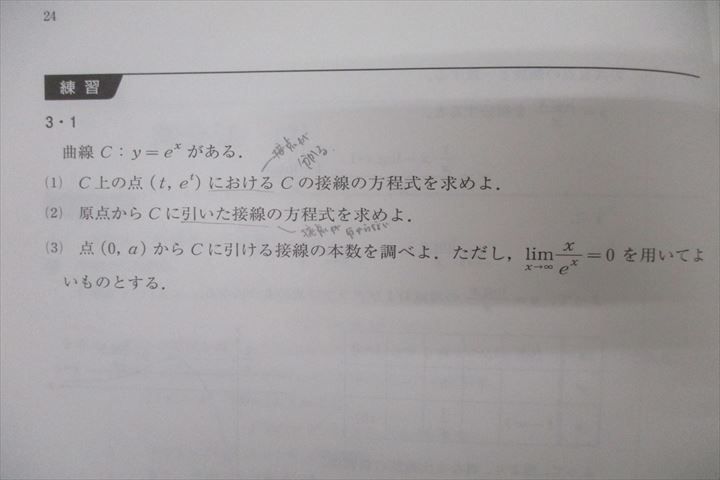 24
練習
3・1
曲線 C：y=e^x がある．
接点が
(1) C上の点 (t, e^t) における C の接線の方程式を求めよ．
(2) 原点から C に引いた接線の方程式を求めよ．
接点が
(3) 点 (0, a) から C に引ける接線の本数を調べよ．ただし，lim_{x→∞} x/e^x = 0 を用いてよ
いものとする．